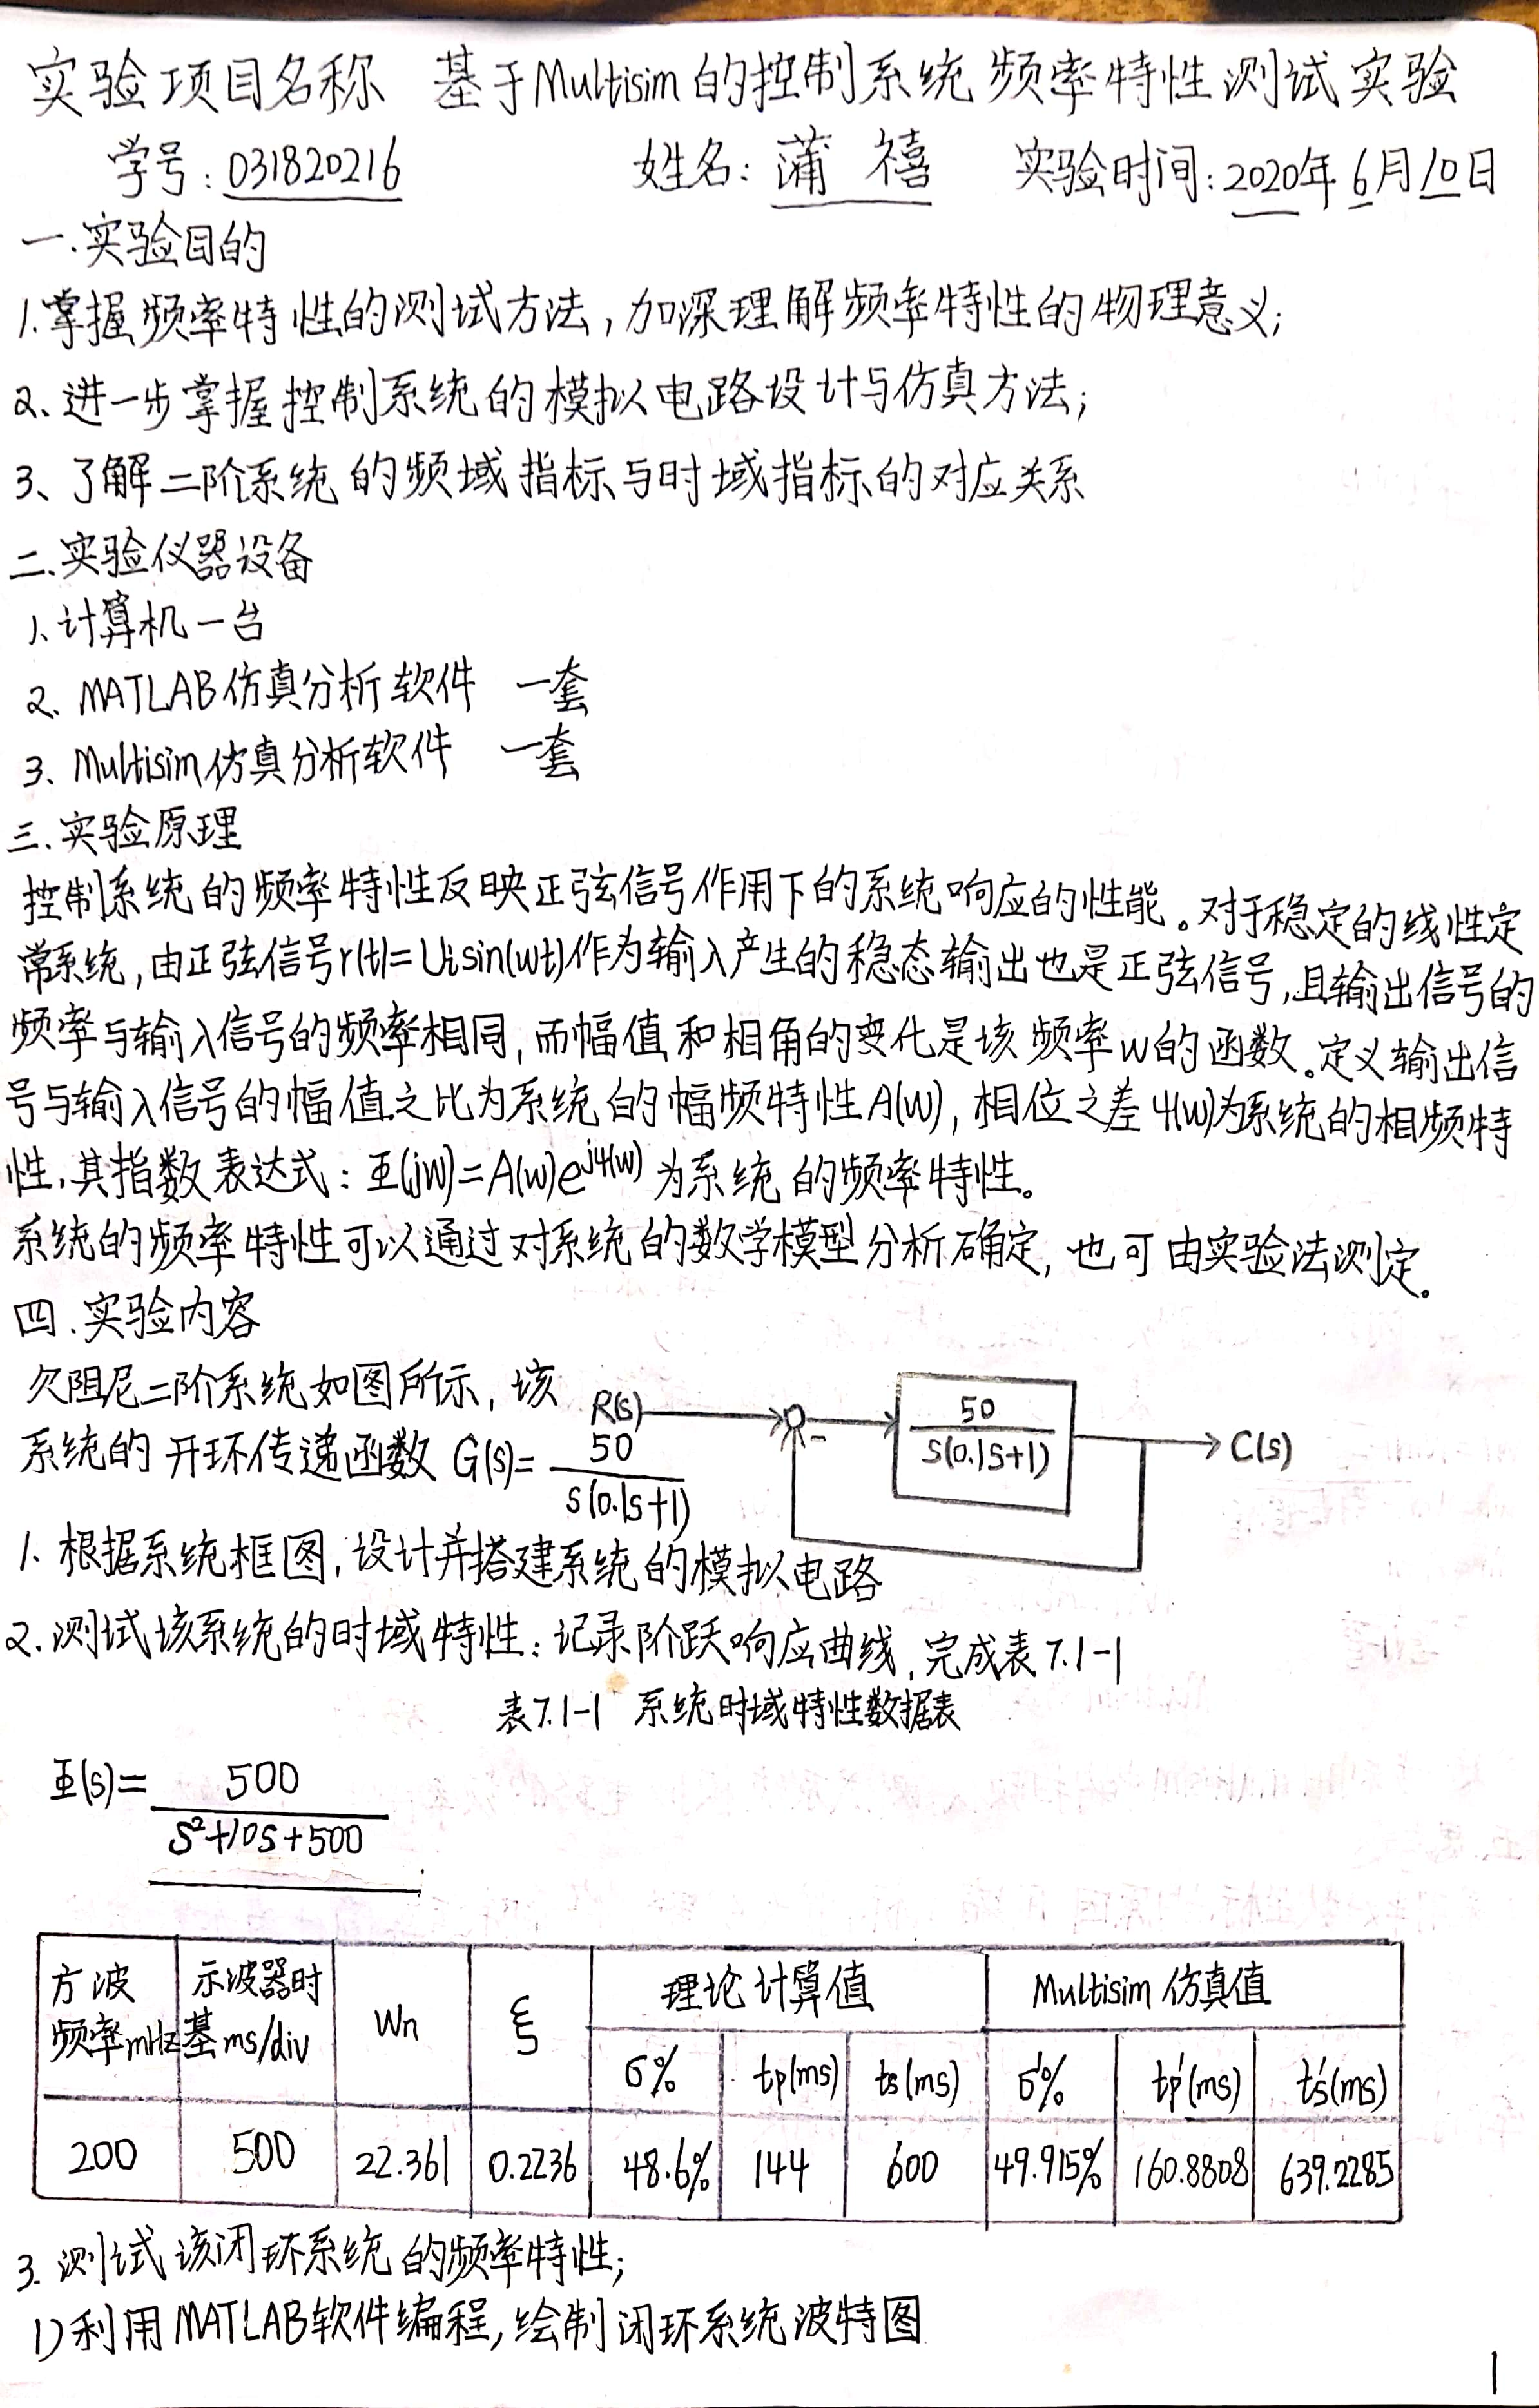 实验项目名称 基于Multisim的控制系统频率特性测试实验
学号：031820216 姓名：蒲禧 实验时间：2020年6月10日
一.实验目的
1.掌握频率特性的测试方法，加深理解频率特性的物理意义；
2、进一步掌握控制系统的模拟电路设计与仿真方法；
3、了解二阶系统的频域指标与时域指标的对应关系
二.实验仪器设备
1、计算机一台
2、MATLAB仿真分析软件 一套
3、Multisim仿真分析软件 一套
三.实验原理
控制系统的频率特性反映正弦信号作用下的系统响应的性能。对于稳定的线性定
常系统，由正弦信号r(t)=Uisin(wt)作为输入产生的稳态输出也是正弦信号，且输出信号的
频率与输入信号的频率相同，而幅值和相角的变化是该频率w的函数。定义输出信
号与输入信号的幅值之比为系统的幅频特性A(w)，相位之差φ(w)为系统的相频特
性，其指数表达式：Φ(jw)=A(w)e^jφ(w)为系统的频率特性。
系统的频率特性可以通过对系统的数学模型分析确定，也可由实验法测定。
四.实验内容
欠阻尼二阶系统如图所示，该
系统的开环传递函数G(s)=50/s(0.1s+1)
R(s) - 50/s(0.1s+1) C(s)
1、根据系统框图，设计并搭建系统的模拟电路
2、测试该系统的时域特性：记录阶跃响应曲线，完成表7.1-1
表7.1-1 系统时域特性数据表
Φ(s)=500/s²+10s+500
方波频率mHz 示波器时基ms/div Wn ξ 理论计算值 Multisim仿真值
σ% tp(ms) ts(ms) σ'% tp'(ms) ts'(ms)
200 500 22.361 0.2236 48.6% 144 600 49.915% 160.8808 639.2285
3.测试该闭环系统的频率特性；
1)利用MATLAB软件编程，绘制闭环系统波特图
1